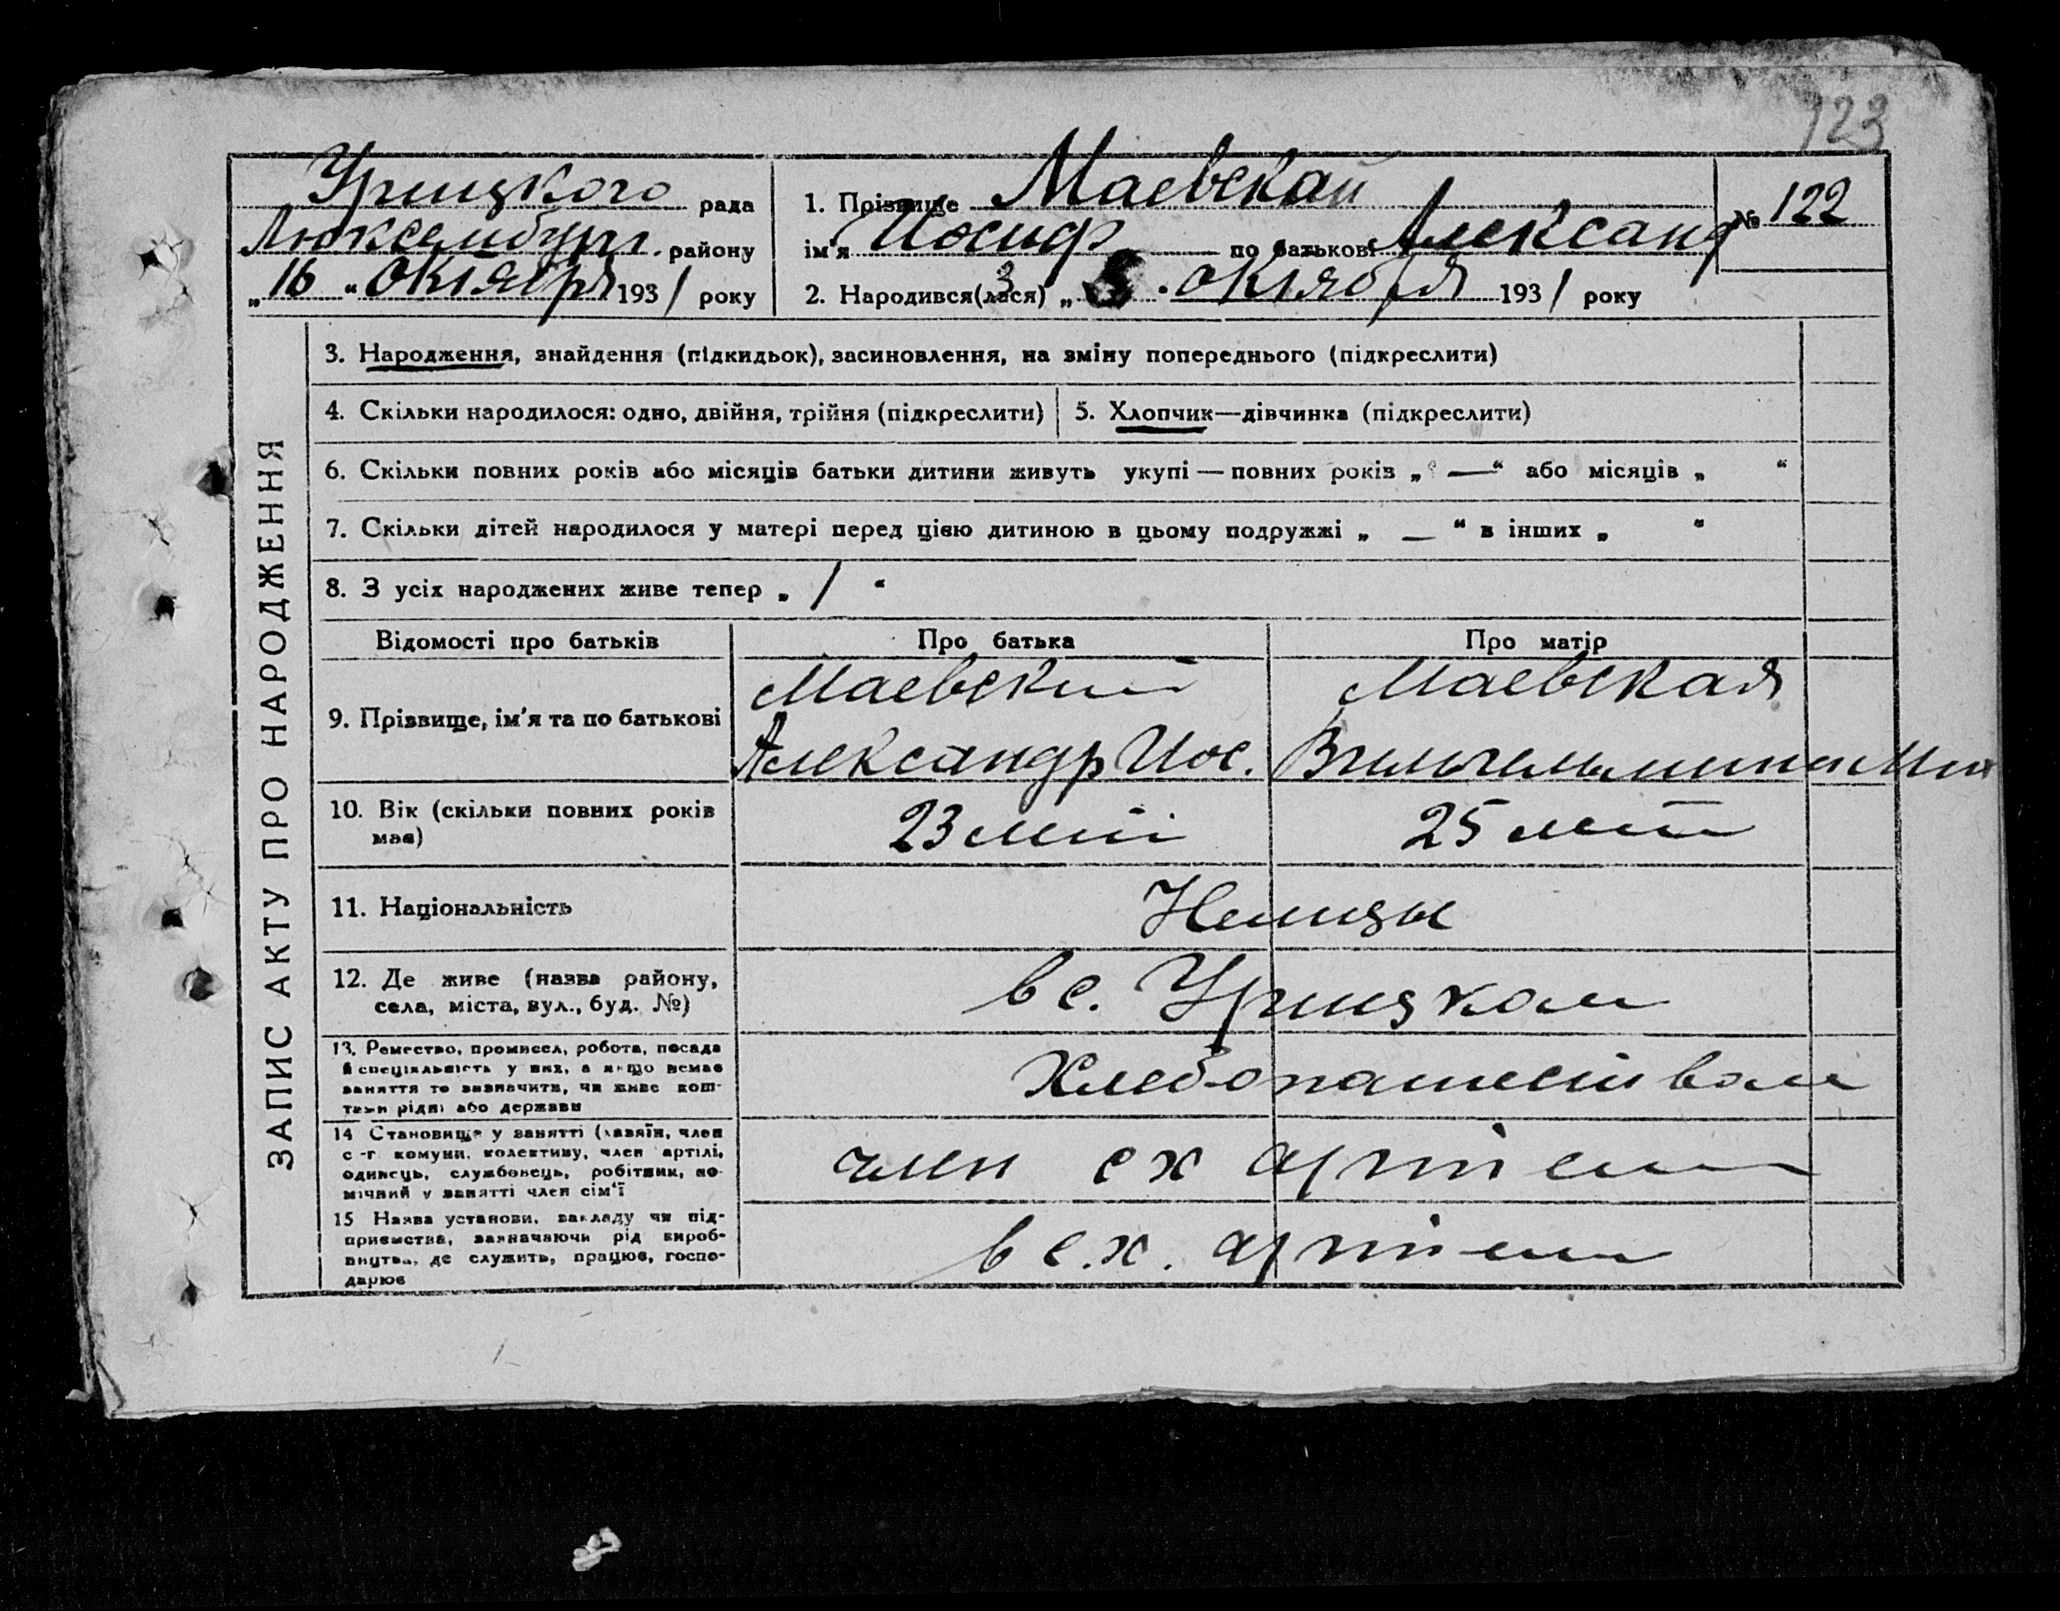 123
Урицкого рада
Люксембург. району
„16“ октября 1931 року
1. Прізвище Маевской
ім'я Иосиф по батькові Александ
№ 122
2. Народився(лася) „3“ октября 1931 року
ЗАПИС АКТУ ПРО НАРОДЖЕННЯ
3. Народження, знайдення (підкидьок), засиновлення, на зміну попереднього (підкреслити)
4. Скільки народилося: одно, двійня, трійня (підкреслити)
5. Хлопчик—дівчинка (підкреслити)
6. Скільки повних років або місяців батьки дитини живуть укупі — повних років „—“ або місяців „ “
7. Скільки дітей народилося у матері перед цією дитиною в цьому подружжі „—“ в інших „ “
8. З усіх народжених живе тепер „1“
Відомості про батьків
Про батька
Про матір
9. Прізвище, ім'я та по батькові
Маевский
Александр Иос.
Маевская
Вильгельмина
10. Вік (скільки повних років
має)
23 лет
25 лет
11. Національність
Немцы
12. Де живе (назва району,
села, міста, вул., буд. №)
в с. Урицком
13. Ремество, промисел, робота, посада
й спеціяльність у них, а якщо немає
заняття то зазначити, чи живе кош-
тами рідні або держави
Хлебопашеством
14 Становище у занятті (хазяїн, член
с.-г. комуни, колективу, член артілі,
одинець, службовець, робітник, по-
мічний у занятті член сім'ї
член сх артели
15 Назва установи, закладу чи під-
приємства, зазначаючи рід вироб-
ництва, де служить, працює, госпо-
дарює
в с.х. артели